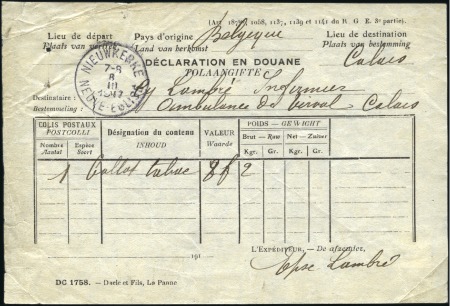 (Art. 1058, 1137, 1139 et 1141 du R G E 3e partie).
Lieu de départ Pays d'origine Belgique Lieu de destination
Plaats van Land van herkomst Plaats van bestemming
Calais
NIEUWKERKE
7-8
8
III
1917
NEUVE-EGLISE
DÉCLARATION EN DOUANE
TOLAANGIFTE
Destinataire : Lambré Infirmier
Bestemmeling : Ambulance de Calais
COLIS POSTAUX
POSTCOLLI
Désignation du contenu
INHOUD
VALEUR
Waarde
POIDS — GEWICHT
Brut — Ruw Net — Zuiver
Nombre
Aantal
Espèce
Soort
Kgr. Gr. Kgr. Gr.
1 Collot tabac 8 f 2
191
L'EXPÉDITEUR, — De afzender,
Epse Lambré
DC 1758. – Daele et Fils, La Panne